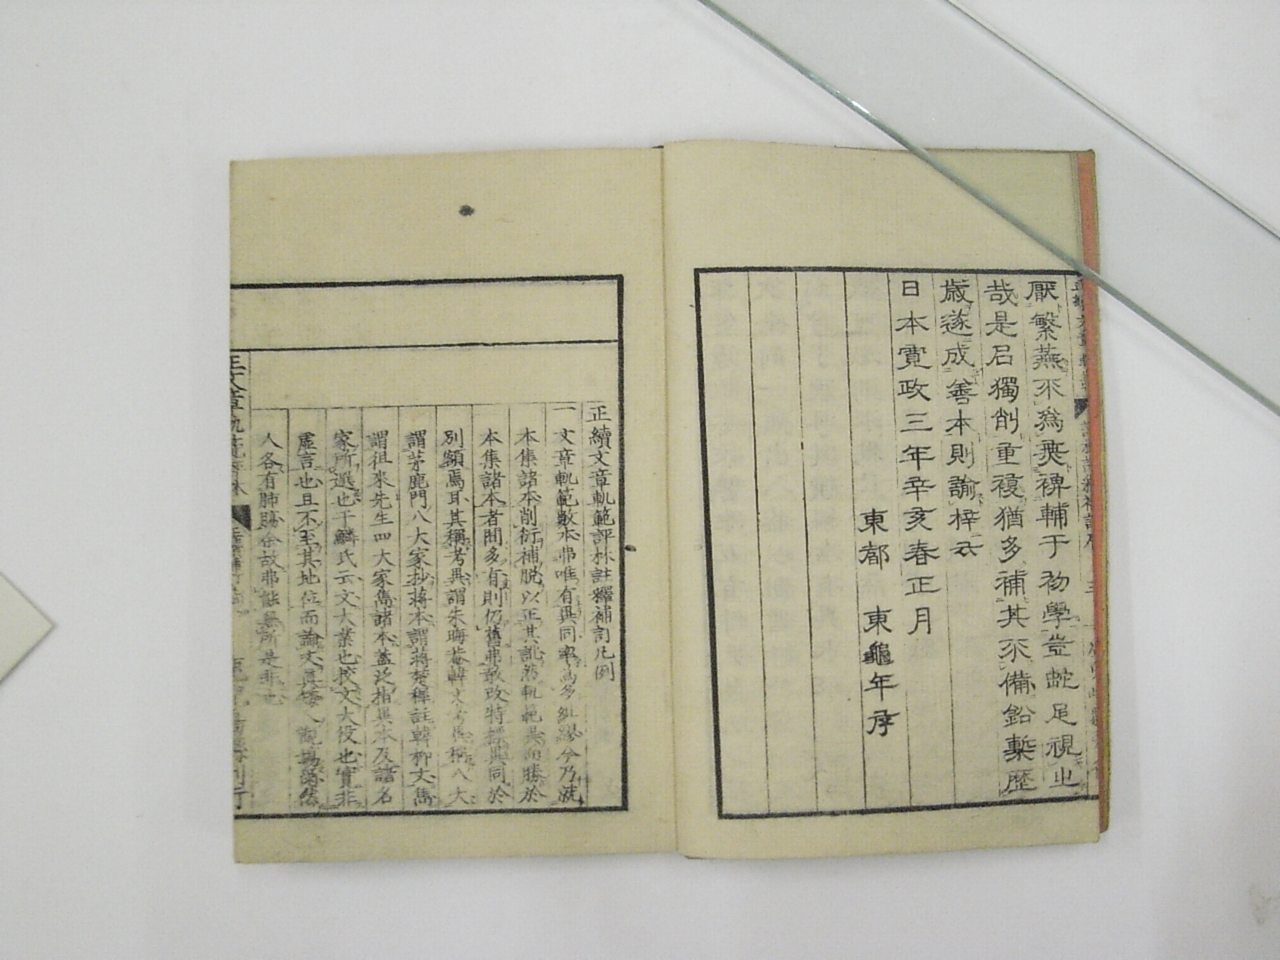 厭繁蕪不爲無裨輔于初學豈蛇足視之
哉是㠯獨削重複猶多補其不備鉛槧歷
歲遂成善本則諭梓云
日本寬政三年辛亥春正月
東都 東龜年序
正續文章軌範評林註釋補訂凡例
一文章軌範數本弗唯有異同寧爲多紕繆今乃就
本集諸本削衍補脫以正其訛
本集諸本者間多有則仍舊弗敢改特標異同於
別額焉耳其稱考異謂朱晦菴韓文考異稱八大
謂茅鹿門八大家抄蔣本謂蔣楚穉註韓柳文雋
謂徂來先生四大家雋諸本蓋泛指異本及諸名
家所選也于鱗氏云文大業也校文大役也實非
虛言也且不至其地位而論文
人各有肺腸余故弗能無所是非也